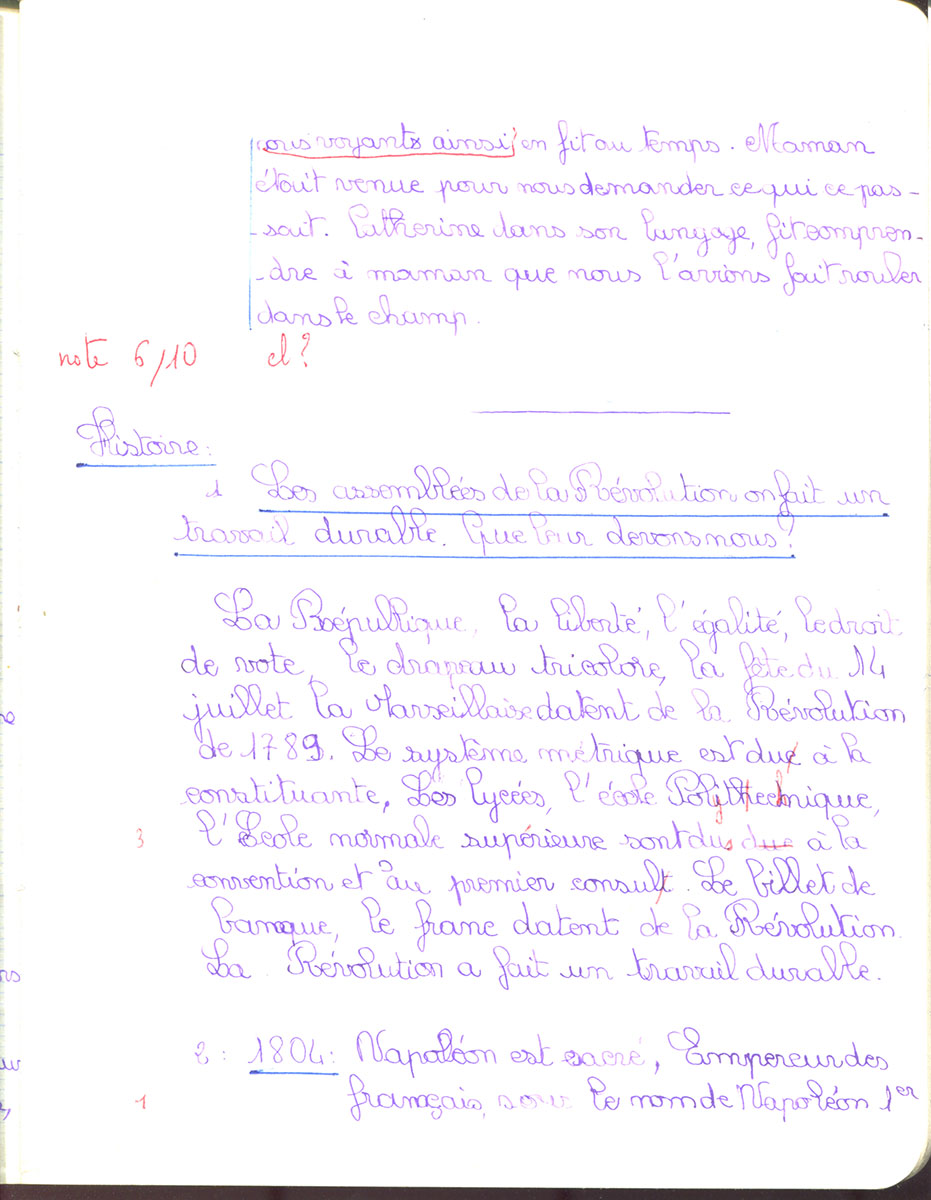 ous voyants ainsi en fit au temps. Maman
était venue pour nous demander ce qui ce pas-
-sait. Catherine dans son langage, fit compren-
-dre à maman que nous l'avions fait rouler
dans le champ.
note 6/10 cl?
Histoire:
1 Les assemblées de la Révolution on fait un
travail durable. Que leur devons nous?
La République, la liberté, l'égalité, le droit
de vote, le drapeau tricolore, la fête du 14
juillet la Marseillaise datent de la Révolution
de 1789. Le système métrique est due à la
constituante, Les lycées, l'école Polythechnique,
3 l'École normale supérieure sont dus due à la
convention et ? au premier consult. Le billet de
banque, le franc datent de la Révolution.
La Révolution a fait un travail durable.
2: 1804: Napoléon est sacré, Empereur des
1 français, sous le nom de Napoléon 1er